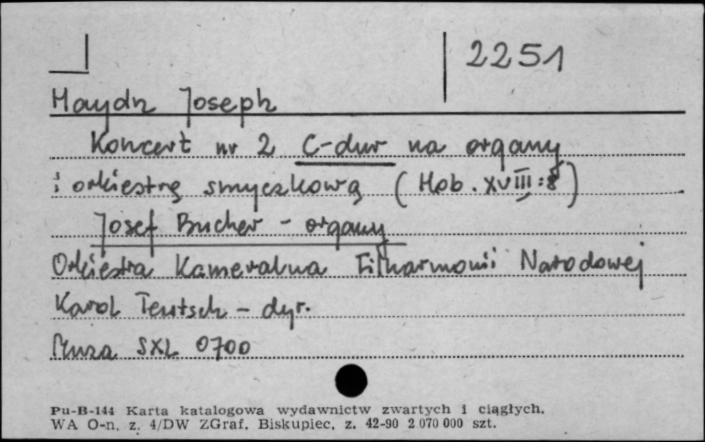 2251
Haydn Joseph
Koncert nr 2 C-dur na organy
i orkiestrę smyczkową (Hob. XVIII:8)
Josef Bucher - organy
Orkiestra Kameralna Filharmonii Narodowej
Karol Teutsch - dyr.
Muza SXL 0700
Pu-B-144 Karta katalogowa wydawnictw zwartych i ciągłych.
WA O-n. z. 4/DW ZGraf. Biskupiec, z. 42-90 2 070 000 szt.